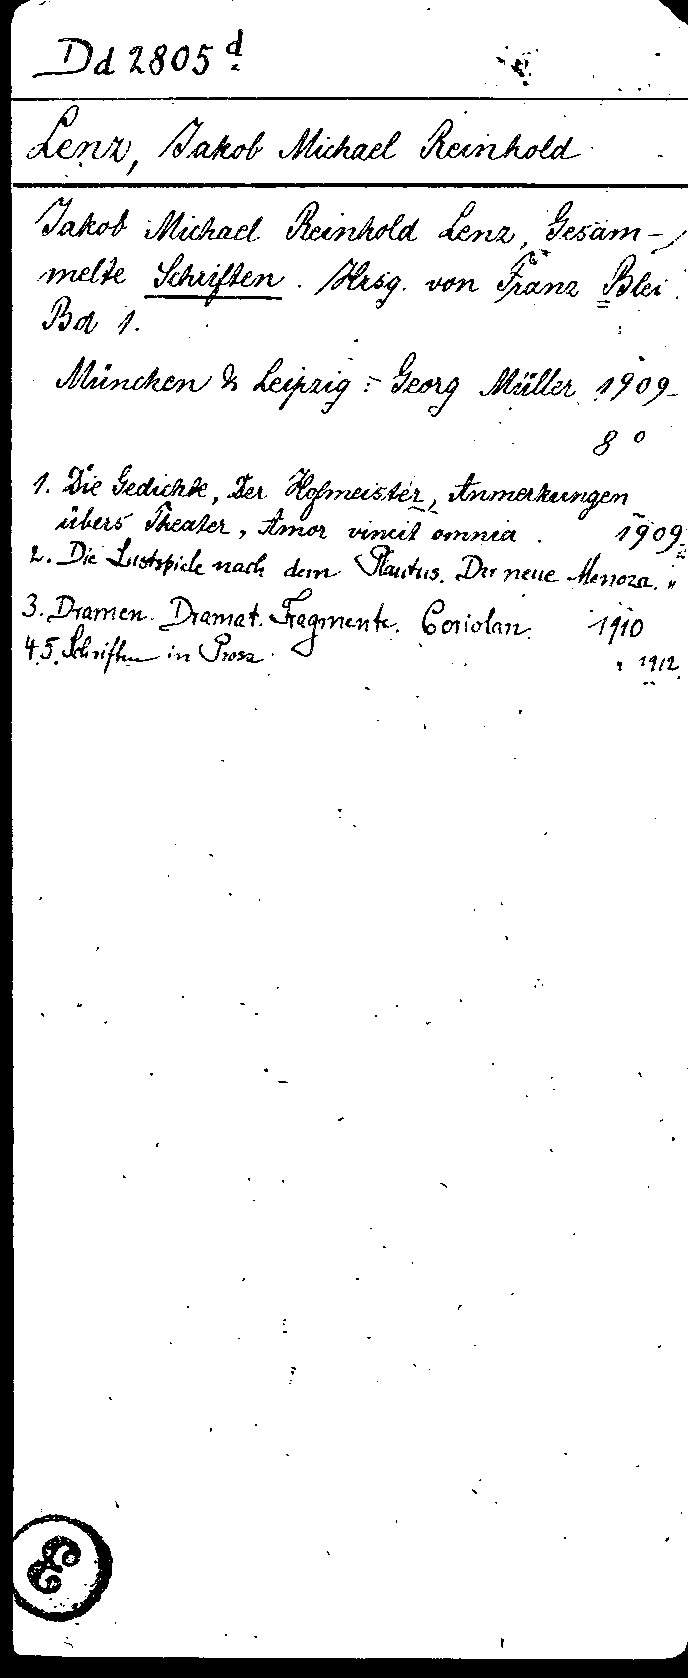 Dd 2805 d
Lenz, Jakob Michael Reinhold
Jakob Michael Reinhold Lenz, Gesam-
melte Schriften. Hrsg. von Franz Blei.
Bd 1.
München & Leipzig: Georg Müller 1909-
8°
1. Die Gedichte, Der Hofmeister, Anmerkungen
übers Theater, Amor vincit omnia. 1909
2. Die Lustspiele nach dem Plautus. Der neue Menoza. "
3. Dramen. Dramat. Fragmente. Coriolan. 1910
4.5. Schriften in Prosa. 1912